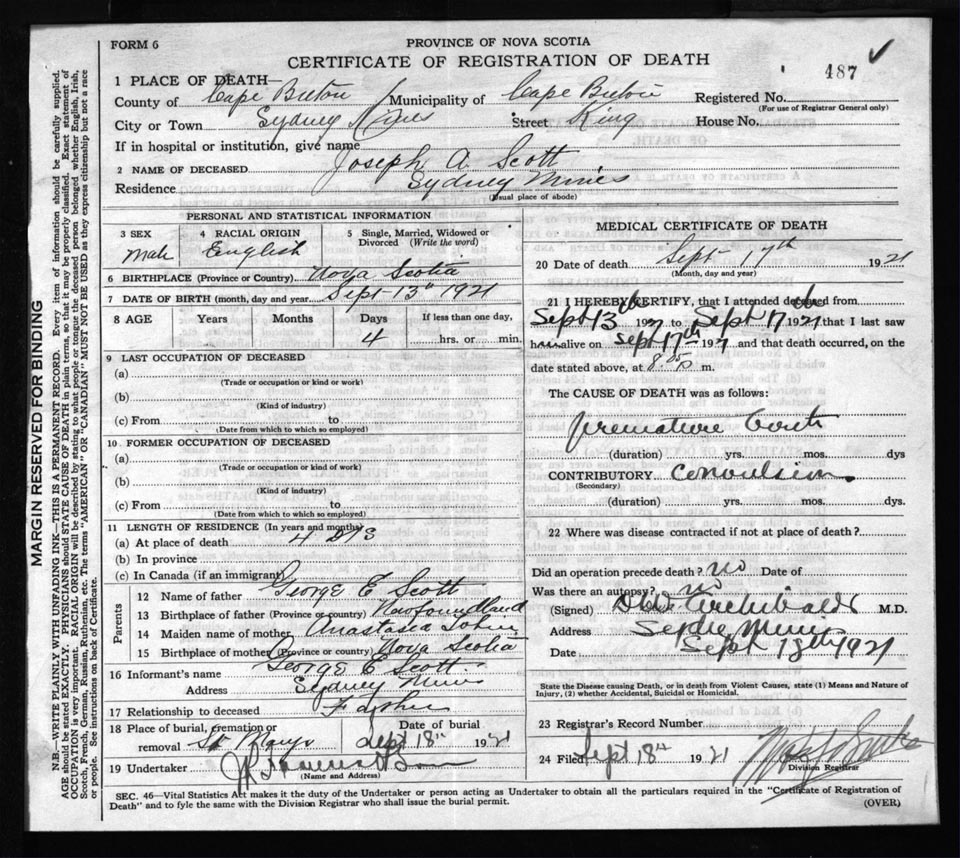 FORM 6
PROVINCE OF NOVA SCOTIA
CERTIFICATE OF REGISTRATION OF DEATH
487 ✓
1 PLACE OF DEATH—
County of Cape Breton Municipality of Cape Breton Registered No.
(For use of Registrar General only)
City or Town Sydney Mines Street King House No.
If in hospital or institution, give name
2 NAME OF DECEASED Joseph A. Scott
Residence Sydney Mines
(Usual place of abode)
PERSONAL AND STATISTICAL INFORMATION
3 SEX 4 RACIAL ORIGIN 5 Single, Married, Widowed or
Divorced (Write the word)
Male English
6 BIRTHPLACE (Province or Country) Nova Scotia
7 DATE OF BIRTH (month, day and year) Sept 13th 1921
8 AGE Years Months Days If less than one day,
4 hrs. or min.
9 LAST OCCUPATION OF DECEASED
(a)
(Trade or occupation or kind or work)
(b)
(Kind of industry)
(c) From to
(Date from which to which so employed)
10 FORMER OCCUPATION OF DECEASED
(a)
(Trade or occupation or kind of work)
(b)
(Kind of industry)
(c) From to
(Date from which to which so employed)
11 LENGTH OF RESIDENCE (In years and months)
(a) At place of death 4 DYS
(b) In province
(c) In Canada (if an immigrant)
Parents
12 Name of father George E Scott
13 Birthplace of father (Province or country) Newfoundland
14 Maiden name of mother Anastasia
15 Birthplace of mother (Province or country) Nova Scotia
16 Informant's name George E Scott
Address Sydney Mines
17 Relationship to deceased Father
18 Place of burial, cremation or Date of burial
removal St Marys Sept 18th 1921
19 Undertaker
(Name and Address)
MEDICAL CERTIFICATE OF DEATH
20 Date of death Sept 17th 1921
(Month, day and year)
21 I HEREBY CERTIFY, that I attended deceased from
Sept 13th 1921 to Sept 17th 1921 that I last saw
him alive on Sept 17th 1921 and that death occurred, on the
date stated above, at 8.05 m.
The CAUSE OF DEATH was as follows:
Premature birth
(duration) yrs. mos. dys
CONTRIBUTORY Convulsion
(Secondary)
(duration) yrs. mos. dys.
22 Where was disease contracted if not at place of death?
Did an operation precede death? no Date of
Was there an autopsy? no
(Signed) Archibald M.D.
Address Sydney Mines
Date Sept 18th 1921
State the Disease causing Death, or in death from Violent Causes, state (1) Means and Nature of
Injury, (2) whether Accidental, Suicidal or Homicidal.
23 Registrar's Record Number
24 Filed Sept 18th 1921
Division Registrar
SEC. 46—Vital Statistics Act makes it the duty of the Undertaker or person acting as Undertaker to obtain all the particulars required in the "Certificate of Registration of
Death" and to fyle the same with the Division Registrar who shall issue the burial permit.
(OVER)
MARGIN RESERVED FOR BINDING
N.B.—WRITE PLAINLY WITH UNFADING INK—THIS IS A PERMANENT RECORD. Every item of information should be carefully supplied.
AGE should be stated EXACTLY. PHYSICIANS should STATE CAUSE OF DEATH in plain terms, so that it may be properly classified. Exact statement of
OCCUPATION is very important. RACIAL ORIGIN will be described by stating to what people or tongue the deceased person belonged whether English, Irish,
Scotch, French, German, Russian, Ruthenian, etc. The terms "AMERICAN" OR "CANADIAN" MUST NOT BE USED as they express citizenship but not a race
or people. See instructions on back of Certificate.